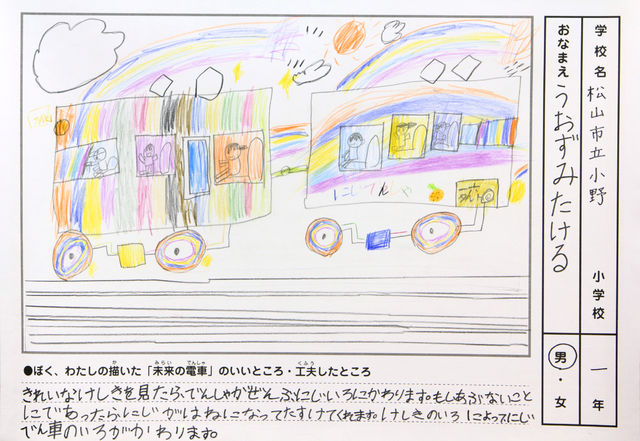 学校名 松山市立小野 小学校
おなまえ うおずみたける
一年
男・女
にじでんしゃ
●ぼく、わたしの描いた「未来の電車」のいいところ・工夫したところ
きれいなけしきを見たらでんしゃがぜんぶにじいろにかわります。もしあぶないこと
にであったらにじがはねになってたすけてくれます。けしきのいろによってにじ
でん車のいろがかわります。